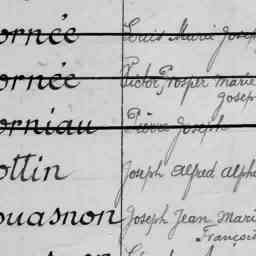 ornée Louis Marie Joseph
ornée Victor Prosper Marie
Joseph
orniau Pierre Joseph
ottin Joseph Alfred Alph
ouasnon Joseph Jean Mari
François